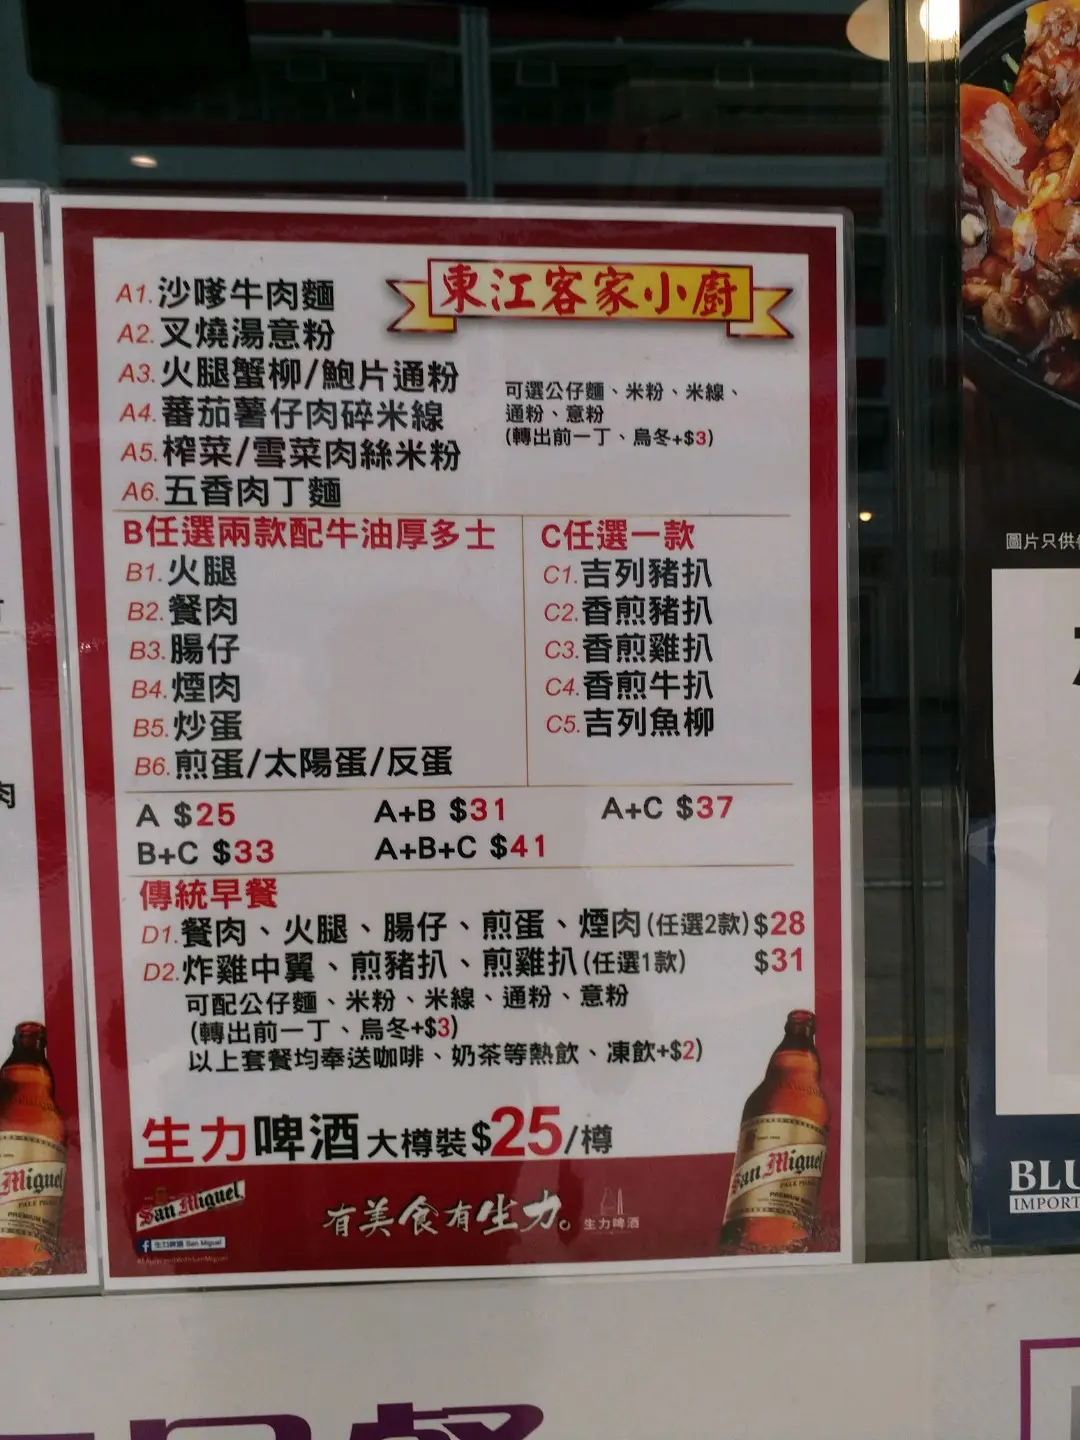 東江客家小廚
A1.沙嗲牛肉麵
A2.叉燒湯意粉
A3.火腿蟹柳/鮑片通粉
A4.蕃茄薯仔肉碎米線
A5.榨菜/雪菜肉絲米粉
A6.五香肉丁麵
可選公仔麵、米粉、米線、
通粉、意粉
(轉出前一丁、烏冬+$3)
B任選兩款配牛油厚多士
B1.火腿
B2.餐肉
B3.腸仔
B4.煙肉
B5.炒蛋
B6.煎蛋/太陽蛋/反蛋
C任選一款
C1.吉列豬扒
C2.香煎豬扒
C3.香煎雞扒
C4.香煎牛扒
C5.吉列魚柳
A $25 A+B $31 A+C $37
B+C $33 A+B+C $41
傳統早餐
D1.餐肉、火腿、腸仔、煎蛋、煙肉(任選2款)$28
D2.炸雞中翼、煎豬扒、煎雞扒(任選1款) $31
可配公仔麵、米粉、米線、通粉、意粉
(轉出前一丁、烏冬+$3)
以上套餐均奉送咖啡、奶茶等熱飲、凍飲+$2)
生力啤酒大樽裝$25/樽
San Miguel
有美食有生力。
生力啤酒
生力啤酒 San Miguel
San Miguel
PALE PILSEN
Miguel
肉
圖片只供
BLU
IMPORT
早餐